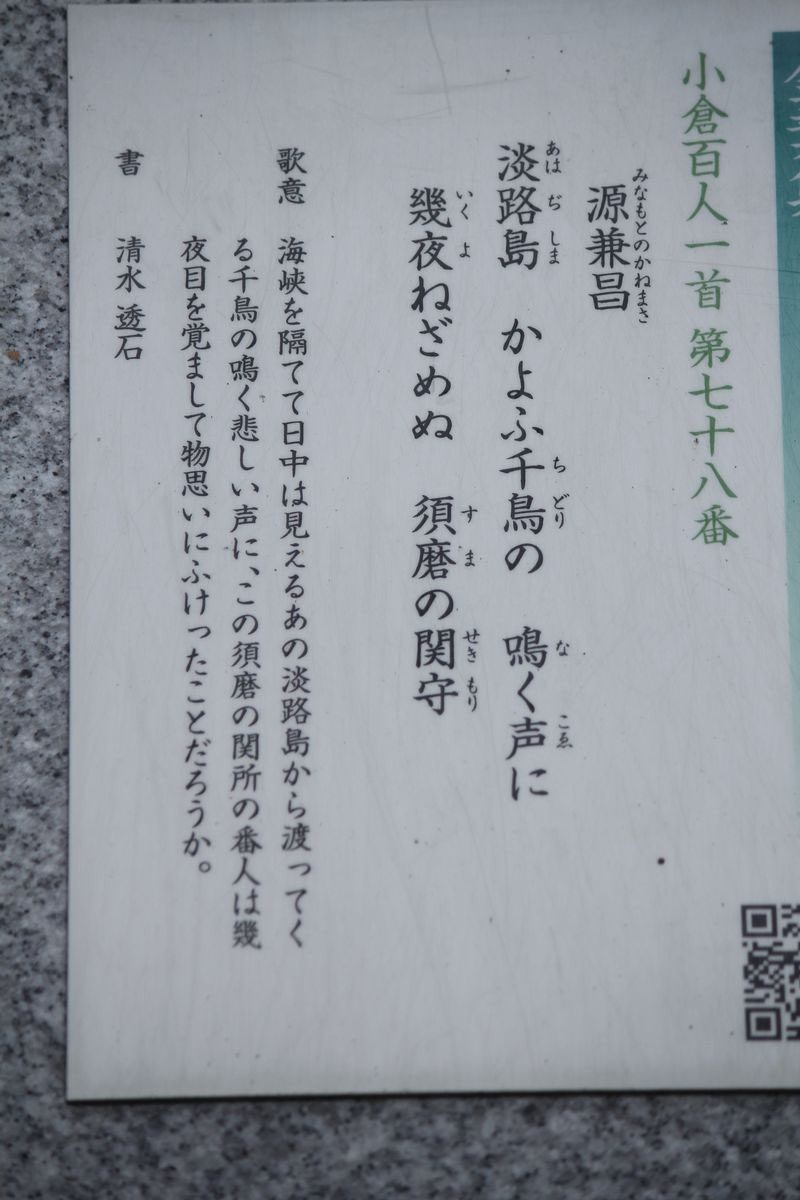 小倉百人一首 第七十八番
みなもとのかねまさ
源兼昌
あは ぢ しま ち どり な こゑ
淡路島 かよふ千鳥の 鳴く声に
いく よ す ま せき もり
幾夜ねざめぬ 須磨の関守
歌意 海峡を隔てて日中は見えるあの淡路島から渡ってく
る千鳥の鳴く悲しい声に、この須磨の関所の番人は幾
夜目を覚まして物思いにふけったことだろうか。
書 清水 透石